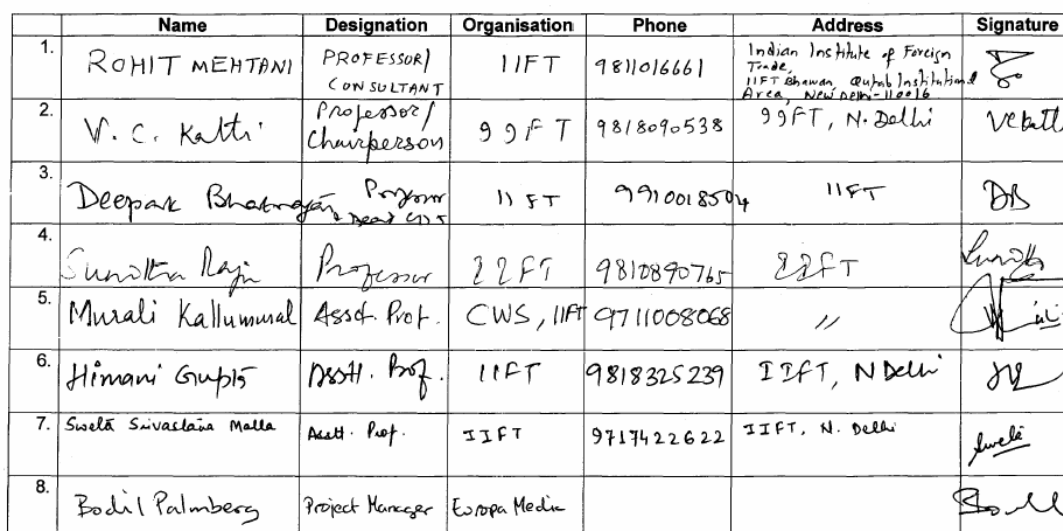 Name Designation Organisation Phone Address Signature
1. ROHIT MEHTANI PROFESSOR/ CONSULTANT IIFT 9811016661 Indian Institute of Foreign Trade, IIFT Bhawan, Qutab Institutional Area, New Delhi-110016
2. V. C. Katti Professor/ Chairperson IIFT 9818090538 IIFT, N. Delhi VCKatti
3. Deepak Bhatnagar Professor IIFT 9910018504 IIFT DB
4. Sunitha Raju Professor IIFT 9810890765 IIFT Sunitha
5. Murali Kallummal Assot. Prof. CWS, IIFT 9711008068 "
6. Himani Gupta Asstt. Prof. IIFT 9818325239 IIFT, N Delhi
7. Swetā Srivastava Malla Asstt. Prof. IIFT 9717422622 IIFT, N. Delhi Swetā
8. Bodil Palmberg Project Manager Europa Media Bodil